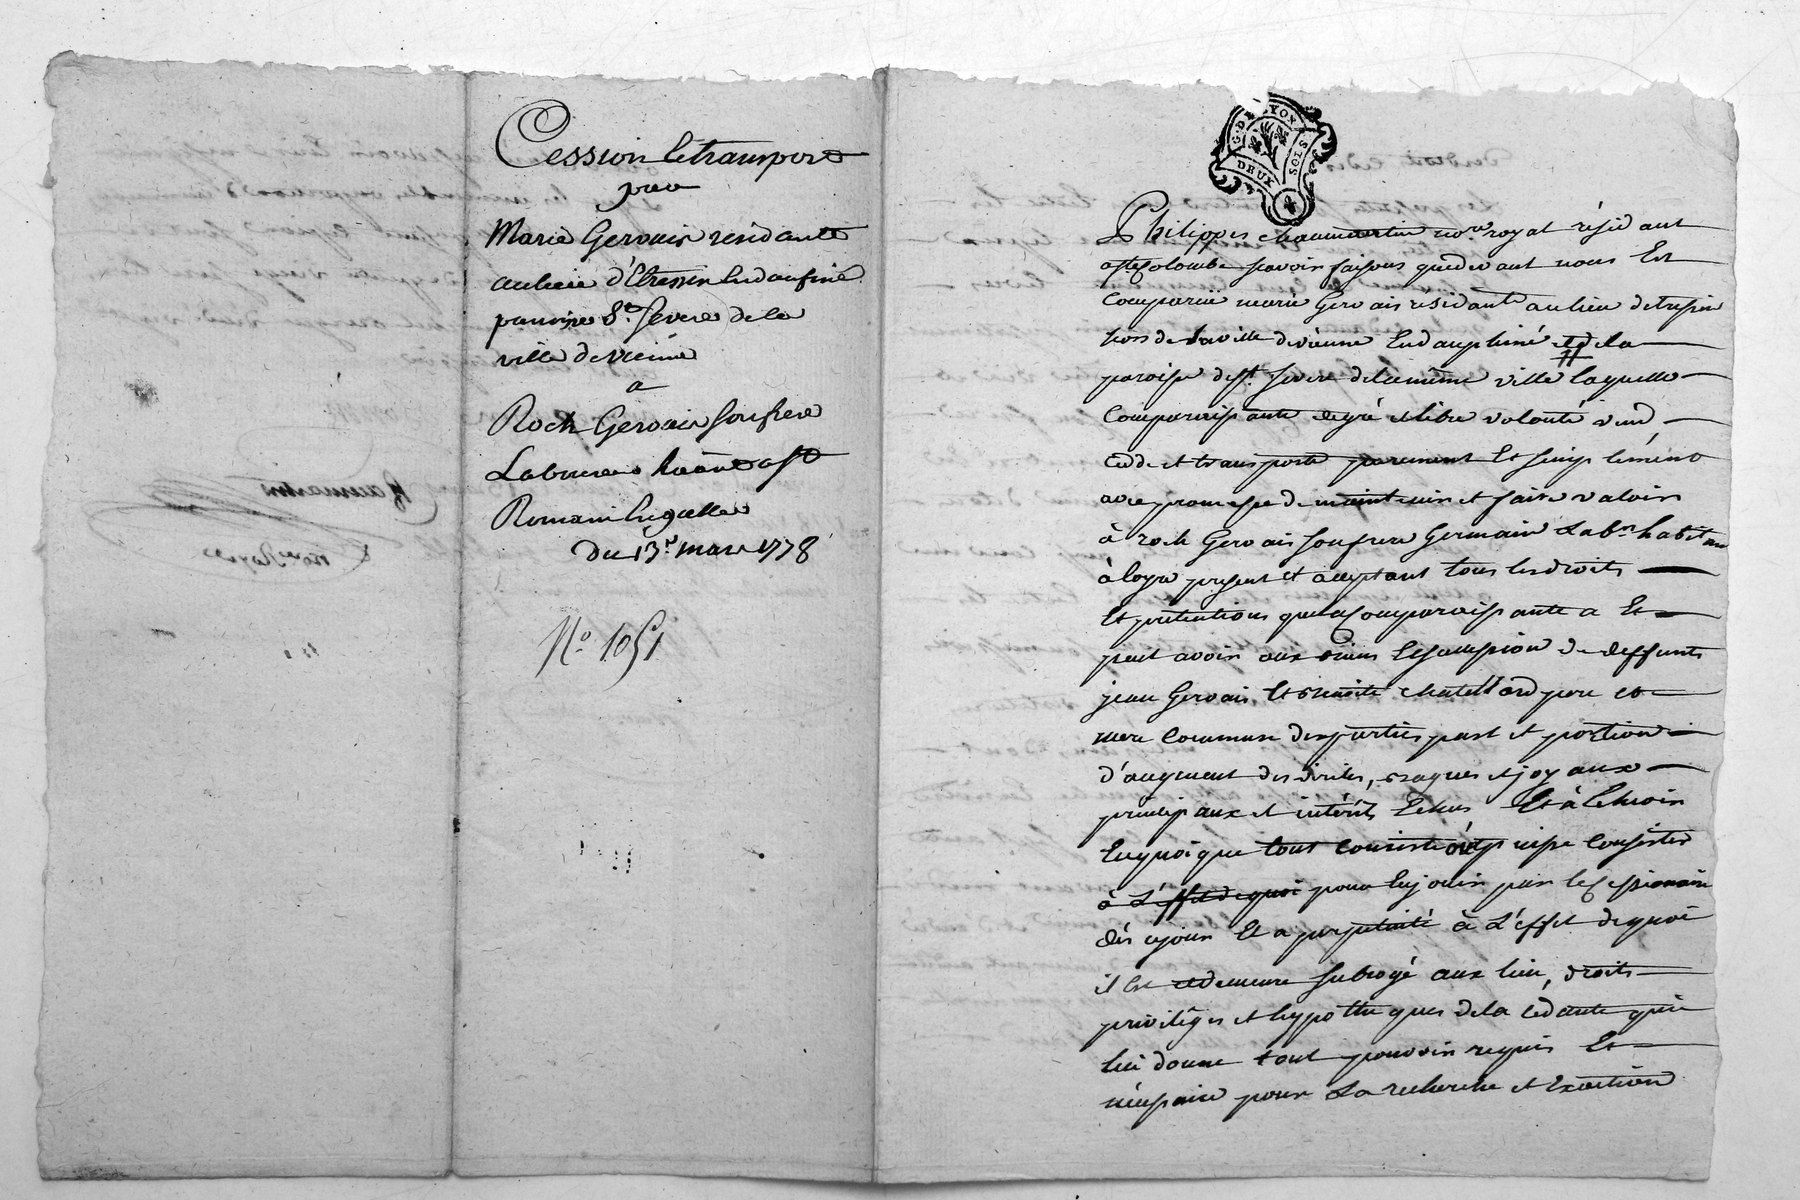 Cession & transport
par
Marie Gervais residante
au lieu d'Etressin en daufiné
paroisse Ste Severe de la
ville de vienne
a
Roch Gervais son frere
Laboureur
Romain
du 13e. mars 1778
No. 1051
G. DE LYON
DEUX SOLS
Philippes chaumartin nore. royal résidant
a ste Colombe sçavoir faisons que devant nous Est
Comparüe marie Gervais résidante au lieu detresin
hors de la ville de vienne En dauphiné de la
paroisse de st. severe de la même ville laquelle
Comparoissante de gré et libre volonté vend
cede et transporte purement Et simplément
avec promesse de maintenir et faire valoir
à roch Gervais son frere Germain Labr. habitant
à loyre present et acceptant tous les droits
Et prétentions que la Comparoissante a Et
peut avoir aux biens Et succession de deffunts
jean Gervais Et benoite chatellard pere et
mere Communs des parties part et portion
d'augment des dittes, bagues et joyaux
principaux et intérets Echus Et à Echeoir
En quoi que tout consiste et puisse Consister
à L'effet de quoi pour En jouir par le Cessionnaire
dès ce jour Et a perpetuité à L'effet de quoi
il Est et demeure subrogé aux lieu, droits
privilèges et hypothéques de la cédante qui
lui donne tout pouvoir requis Et
nécessaire pour La recherche et Exaction